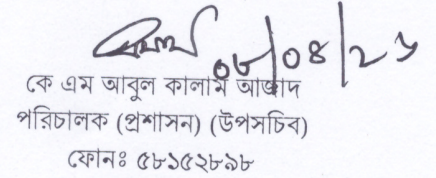 কে এম আবুল কালাম আজাদ
পরিচালক (প্রশাসন) (উপসচিব)
ফোনঃ ৫৮১৫২৮৯৮